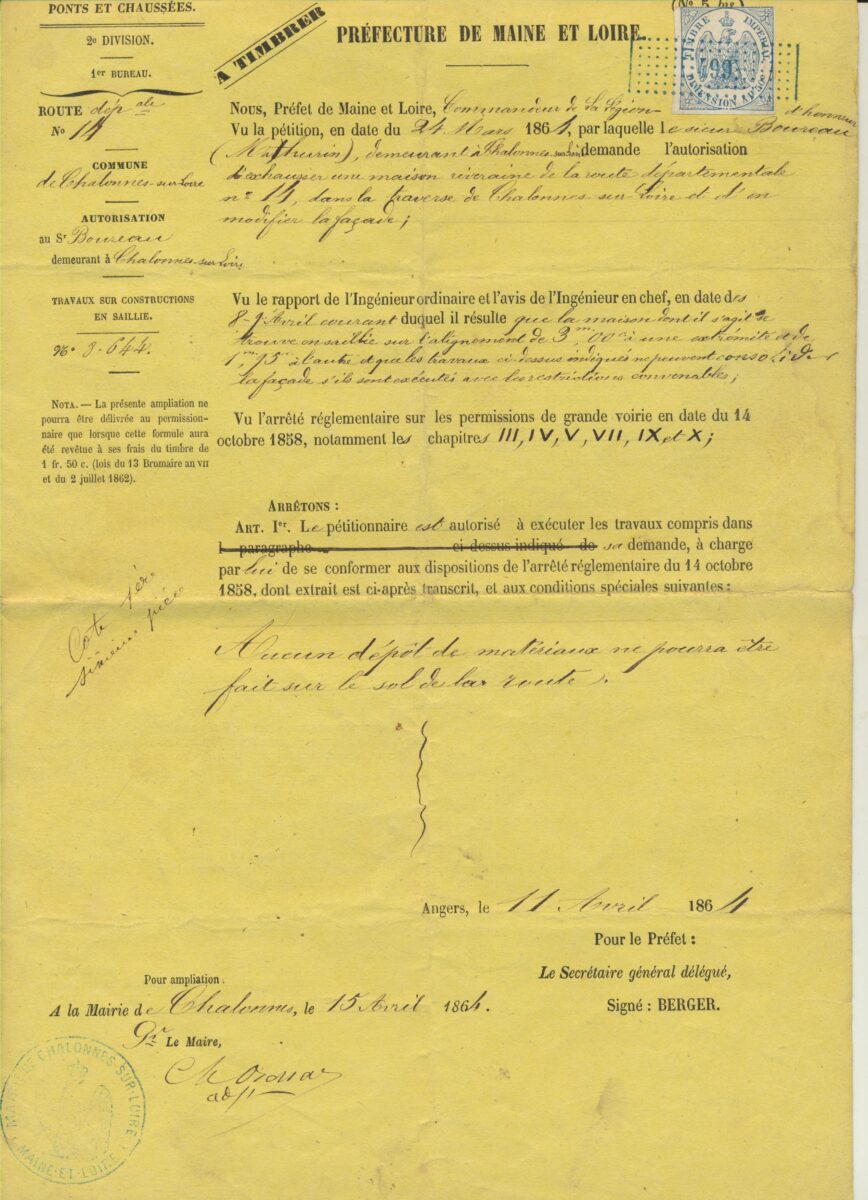 PONTS ET CHAUSSÉES.
2e DIVISION.
1er BUREAU.
ROUTE dép ale
No 14
COMMUNE
de Chalonnes-sur-Loire
AUTORISATION
au Sr Boureau
demeurant à Chalonnes-sur-Loire
TRAVAUX SUR CONSTRUCTIONS
EN SAILLIE.
No 8-644.
NOTA. — La présente ampliation ne
pourra être délivrée au permission-
naire que lorsque cette formule aura
été revêtue à ses frais du timbre de
1 fr. 50 c. (lois du 13 Brumaire an VII
et du 2 juillet 1862).
Cote 1ère
sixième pièce
A TIMBRER
(No 5 bis)
PRÉFECTURE DE MAINE ET LOIRE.
TIMBRE IMPÉRIAL
DIMENSION
499
Nous, Préfet de Maine et Loire, Commandeur de la Légion d'honneur
Vu la pétition, en date du 24 Mars 1864, par laquelle le sieur Boureau
(Mathurin), demeurant à Chalonnes-sur-Loire demande l'autorisation
d'exhausser une maison riveraine de la route départementale
no 14, dans la traverse de Chalonnes-sur-Loire et d'en
modifier la façade;
Vu le rapport de l'Ingénieur ordinaire et l'avis de l'Ingénieur en chef, en date des
8-9 Avril courant duquel il résulte que la maison dont il s'agit se
trouve en saillie sur l'alignement de 3m,00c à une extrémité et de
1m,15c à l'autre et que les travaux ci-dessus indiqués ne peuvent consolider
la façade s'ils sont exécutés avec les restrictions convenables;
Vu l'arrêté réglementaire sur les permissions de grande voirie en date du 14
octobre 1858, notamment les chapitres III, IV, V, VII, IX et X;
ARRÊTONS :
ART. Ier. Le pétitionnaire est autorisé à exécuter les travaux compris dans
l paragraphe ci-dessus indiqué de sa demande, à charge
par lui de se conformer aux dispositions de l'arrêté réglementaire du 14 octobre
1858, dont extrait est ci-après transcrit, et aux conditions spéciales suivantes :
Aucun dépôt de matériaux ne pourra être
fait sur le sol de la route.
Angers, le 11 Avril 1864
Pour le Préfet :
Le Secrétaire général délégué,
Signé : BERGER.
Pour ampliation :
A la Mairie de Chalonnes, le 15 Avril 1864.
Pr Le Maire,
adjt
MAIRIE DE CHALONNES-SUR-LOIRE
MAINE-ET-LOIRE